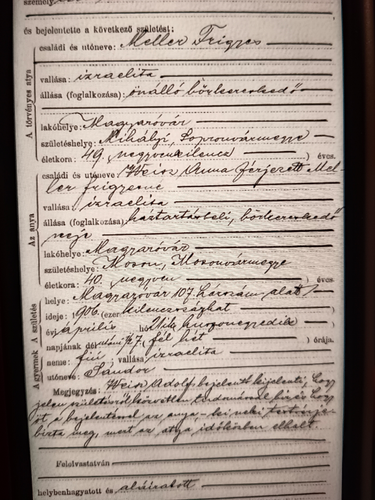 és bejelentette a következő születést:
családi és utóneve: Meller Frigyes
A törvényes atya
vallása: izraelita
állása (foglalkozása): önálló bőrkereskedő
lakóhelye: Magyaróvár
születéshelye: Mihályi, Sopronvármegye
életkora: 49, negyvenkilenc éves.
Az anya
családi és utóneve: Weisz Anna férjezett Mel-
ler Frigyesné
vallása: izraelita
állása (foglalkozása): háztartásbeli, bőrkereskedő
neje
lakóhelye: Magyaróvár
születéshelye: Moson, Mosonvármegye
életkora: 40, negyven éves.
A születés
helye: Magyaróvár 107. házszám alatt
ideje: 1906. (ezerkilencszázhat)
évi április hó 24ik, huszonnegyedik
napjának délutáni ½7, fél hét órája.
A gyermek
neme: fiú; vallása: izraelita
utóneve: Sándor
Megjegyzés: Weisz Adolf bejelentő kijelenti, hogy
jelen születésről közvetlen tudomással bir és hogy
őt a bejelentéssel az anya
bizta meg, mert az atya időközben elhalt.
Felolvastatván
helybenhagyatott és aláíratott